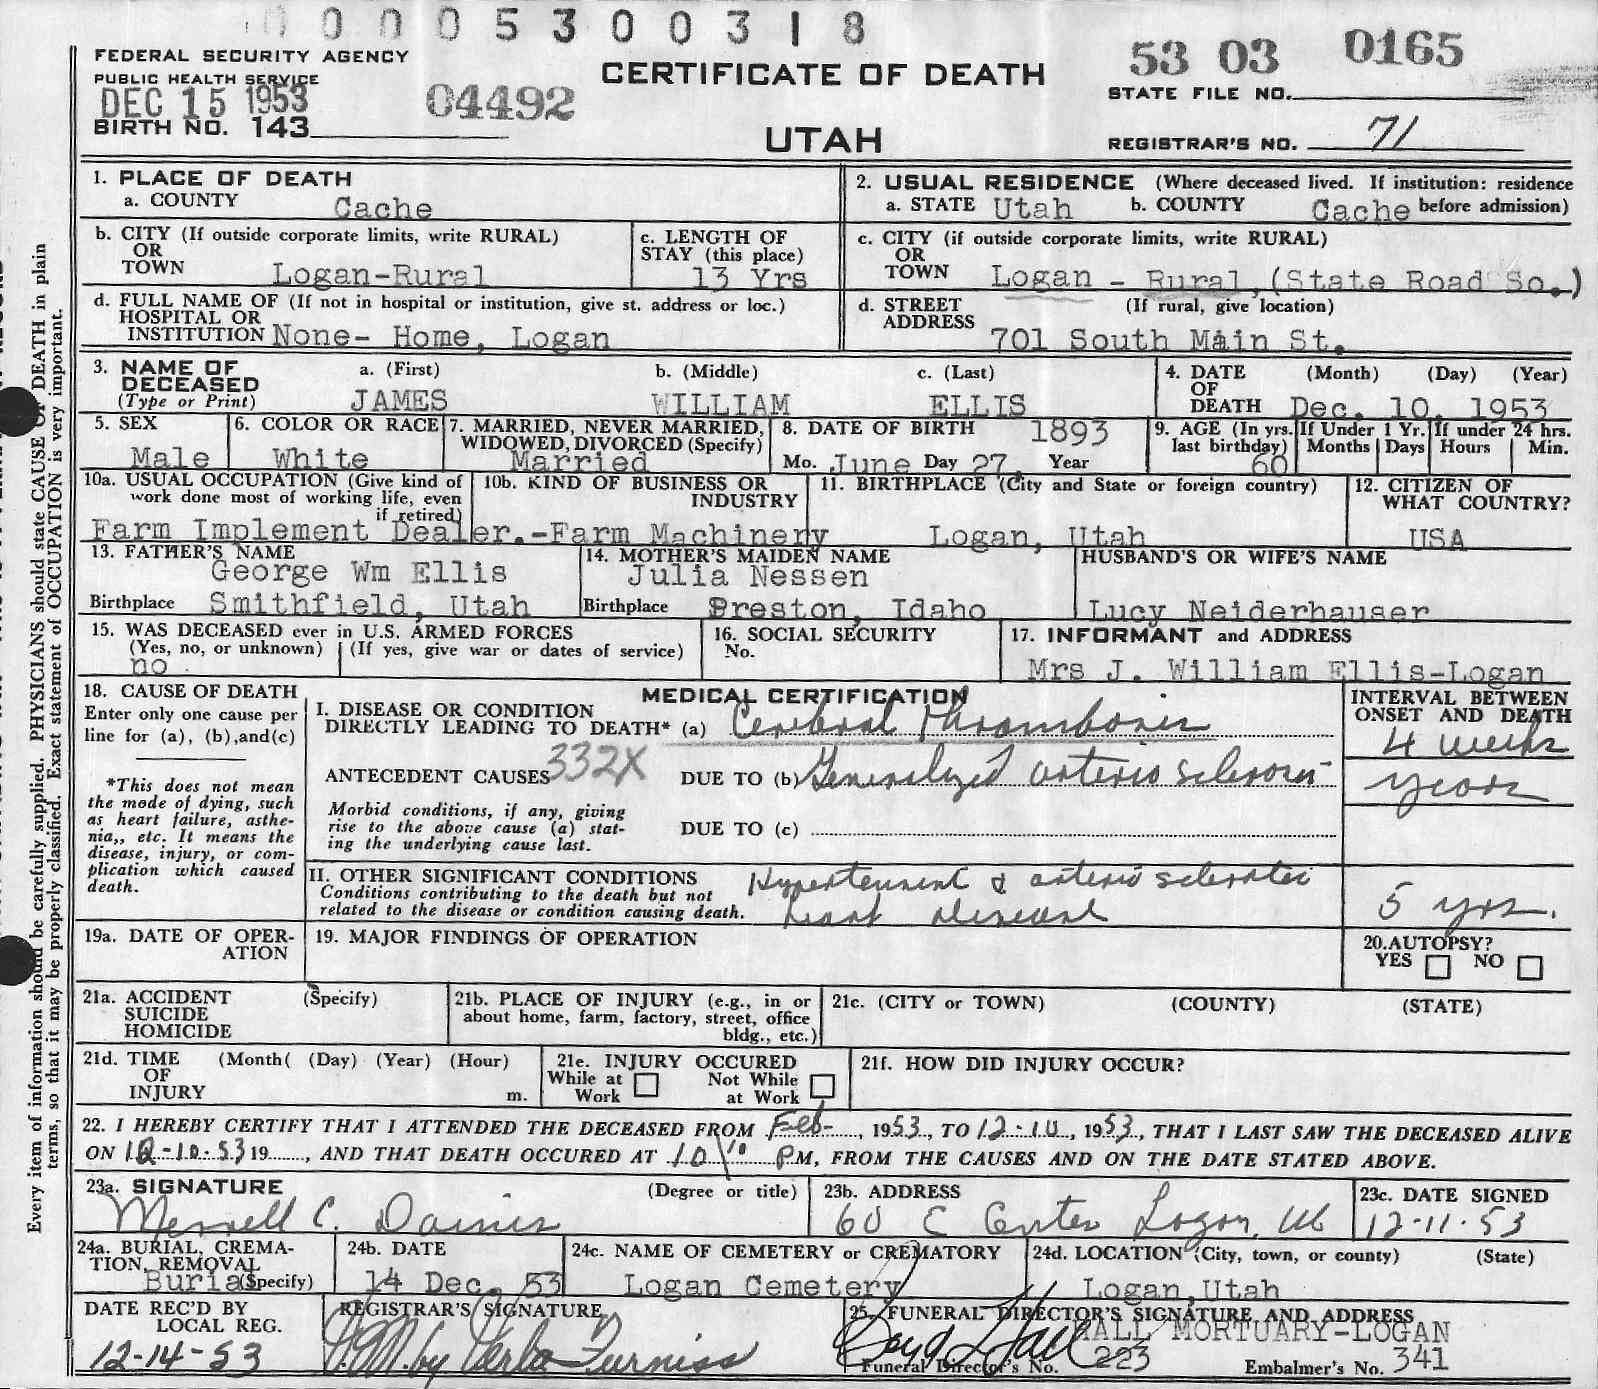 0 0 0 0 5 3 0 0 3 1 8
FEDERAL SECURITY AGENCY
PUBLIC HEALTH SERVICE
DEC 15 1953
04492
BIRTH NO. 143
CERTIFICATE OF DEATH
UTAH
53 03 0165
STATE FILE NO.
REGISTRAR'S NO. 71
1. PLACE OF DEATH
a. COUNTY Cache
2. USUAL RESIDENCE (Where deceased lived. If institution: residence
a. STATE Utah b. COUNTY Cache before admission)
b. CITY (If outside corporate limits, write RURAL)
OR
TOWN Logan-Rural
c. LENGTH OF
STAY (this place)
13 Yrs
c. CITY (if outside corporate limits, write RURAL)
OR
TOWN Logan - Rural, (State Road So.)
d. FULL NAME OF (If not in hospital or institution, give st. address or loc.)
HOSPITAL OR
INSTITUTION None- Home, Logan
d. STREET (If rural, give location)
ADDRESS
701 South Main St.
3. NAME OF a. (First) b. (Middle) c. (Last)
DECEASED
(Type or Print) JAMES WILLIAM ELLIS
4. DATE (Month) (Day) (Year)
OF
DEATH Dec. 10, 1953
5. SEX
Male
6. COLOR OR RACE
White
7. MARRIED, NEVER MARRIED,
WIDOWED, DIVORCED (Specify)
Married
8. DATE OF BIRTH 1893
Mo. June Day 27, Year
9. AGE (In yrs.
last birthday)
60
If Under 1 Yr.
Months Days
If under 24 hrs.
Hours Min.
10a. USUAL OCCUPATION (Give kind of
work done most of working life, even
if retired)
10b. KIND OF BUSINESS OR
INDUSTRY
Farm Implement Dealer.-Farm Machinery
11. BIRTHPLACE (City and State or foreign country)
Logan, Utah
12. CITIZEN OF
WHAT COUNTRY?
USA
13. FATHER'S NAME
George Wm Ellis
Birthplace Smithfield, Utah
14. MOTHER'S MAIDEN NAME
Julia Nessen
Birthplace Preston, Idaho
HUSBAND'S OR WIFE'S NAME
Lucy Neiderhauser
15. WAS DECEASED ever in U.S. ARMED FORCES
(Yes, no, or unknown) (If yes, give war or dates of service)
no
16. SOCIAL SECURITY
No.
17. INFORMANT and ADDRESS
Mrs J. William Ellis-Logan
18. CAUSE OF DEATH
Enter only one cause per
line for (a), (b),and(c)
*This does not mean
the mode of dying, such
as heart failure, asthe-
nia,, etc. It means the
disease, injury, or com-
plication which caused
death.
MEDICAL CERTIFICATION
I. DISEASE OR CONDITION
DIRECTLY LEADING TO DEATH* (a) Cerebral thrombosis
ANTECEDENT CAUSES 332X DUE TO (b) Generalized arterio sclerosis
Morbid conditions, if any, giving
rise to the above cause (a) stat-
ing the underlying cause last.
DUE TO (c)
II. OTHER SIGNIFICANT CONDITIONS
Conditions contributing to the death but not
related to the disease or condition causing death.
Hypertensive & arterio sclerotic
heart disease
INTERVAL BETWEEN
ONSET AND DEATH
4 weeks
years
5 yrs.
19a. DATE OF OPER-
ATION
19. MAJOR FINDINGS OF OPERATION
20.AUTOPSY?
YES NO
21a. ACCIDENT (Specify)
SUICIDE
HOMICIDE
21b. PLACE OF INJURY (e.g., in or
about home, farm, factory, street, office
bldg., etc.)
21c. (CITY or TOWN) (COUNTY) (STATE)
21d. TIME (Month( (Day) (Year) (Hour)
OF
INJURY m.
21e. INJURY OCCURED
While at Not While
Work at Work
21f. HOW DID INJURY OCCUR?
22. I HEREBY CERTIFY THAT I ATTENDED THE DECEASED FROM Feb-, 1953, TO 12-10, 1953, THAT I LAST SAW THE DECEASED ALIVE
ON 12-10-53 19......, AND THAT DEATH OCCURED AT 10 10 PM, FROM THE CAUSES AND ON THE DATE STATED ABOVE.
23a. SIGNATURE (Degree or title)
Merrell C. Daines
23b. ADDRESS
60 E Center Logan, Ut
23c. DATE SIGNED
12-11-53
24a. BURIAL, CREMA-
TION, REMOVAL
Burial (Specify)
24b. DATE
14 Dec. 53
24c. NAME OF CEMETERY or CREMATORY
Logan Cemetery
24d. LOCATION (City, town, or county) (State)
Logan, Utah
DATE REC'D BY
LOCAL REG.
12-14-53
REGISTRAR'S SIGNATURE
by Verla Furniss
25. FUNERAL DIRECTOR'S SIGNATURE AND ADDRESS
Boyd Hall HALL MORTUARY-LOGAN
Funeral Director's No. 223 Embalmer's No. 341
Every item of information should be carefully supplied. PHYSICIANS should state CAUSE OF DEATH in plain
terms, so that it may be properly classified. Exact statement of OCCUPATION is very important.